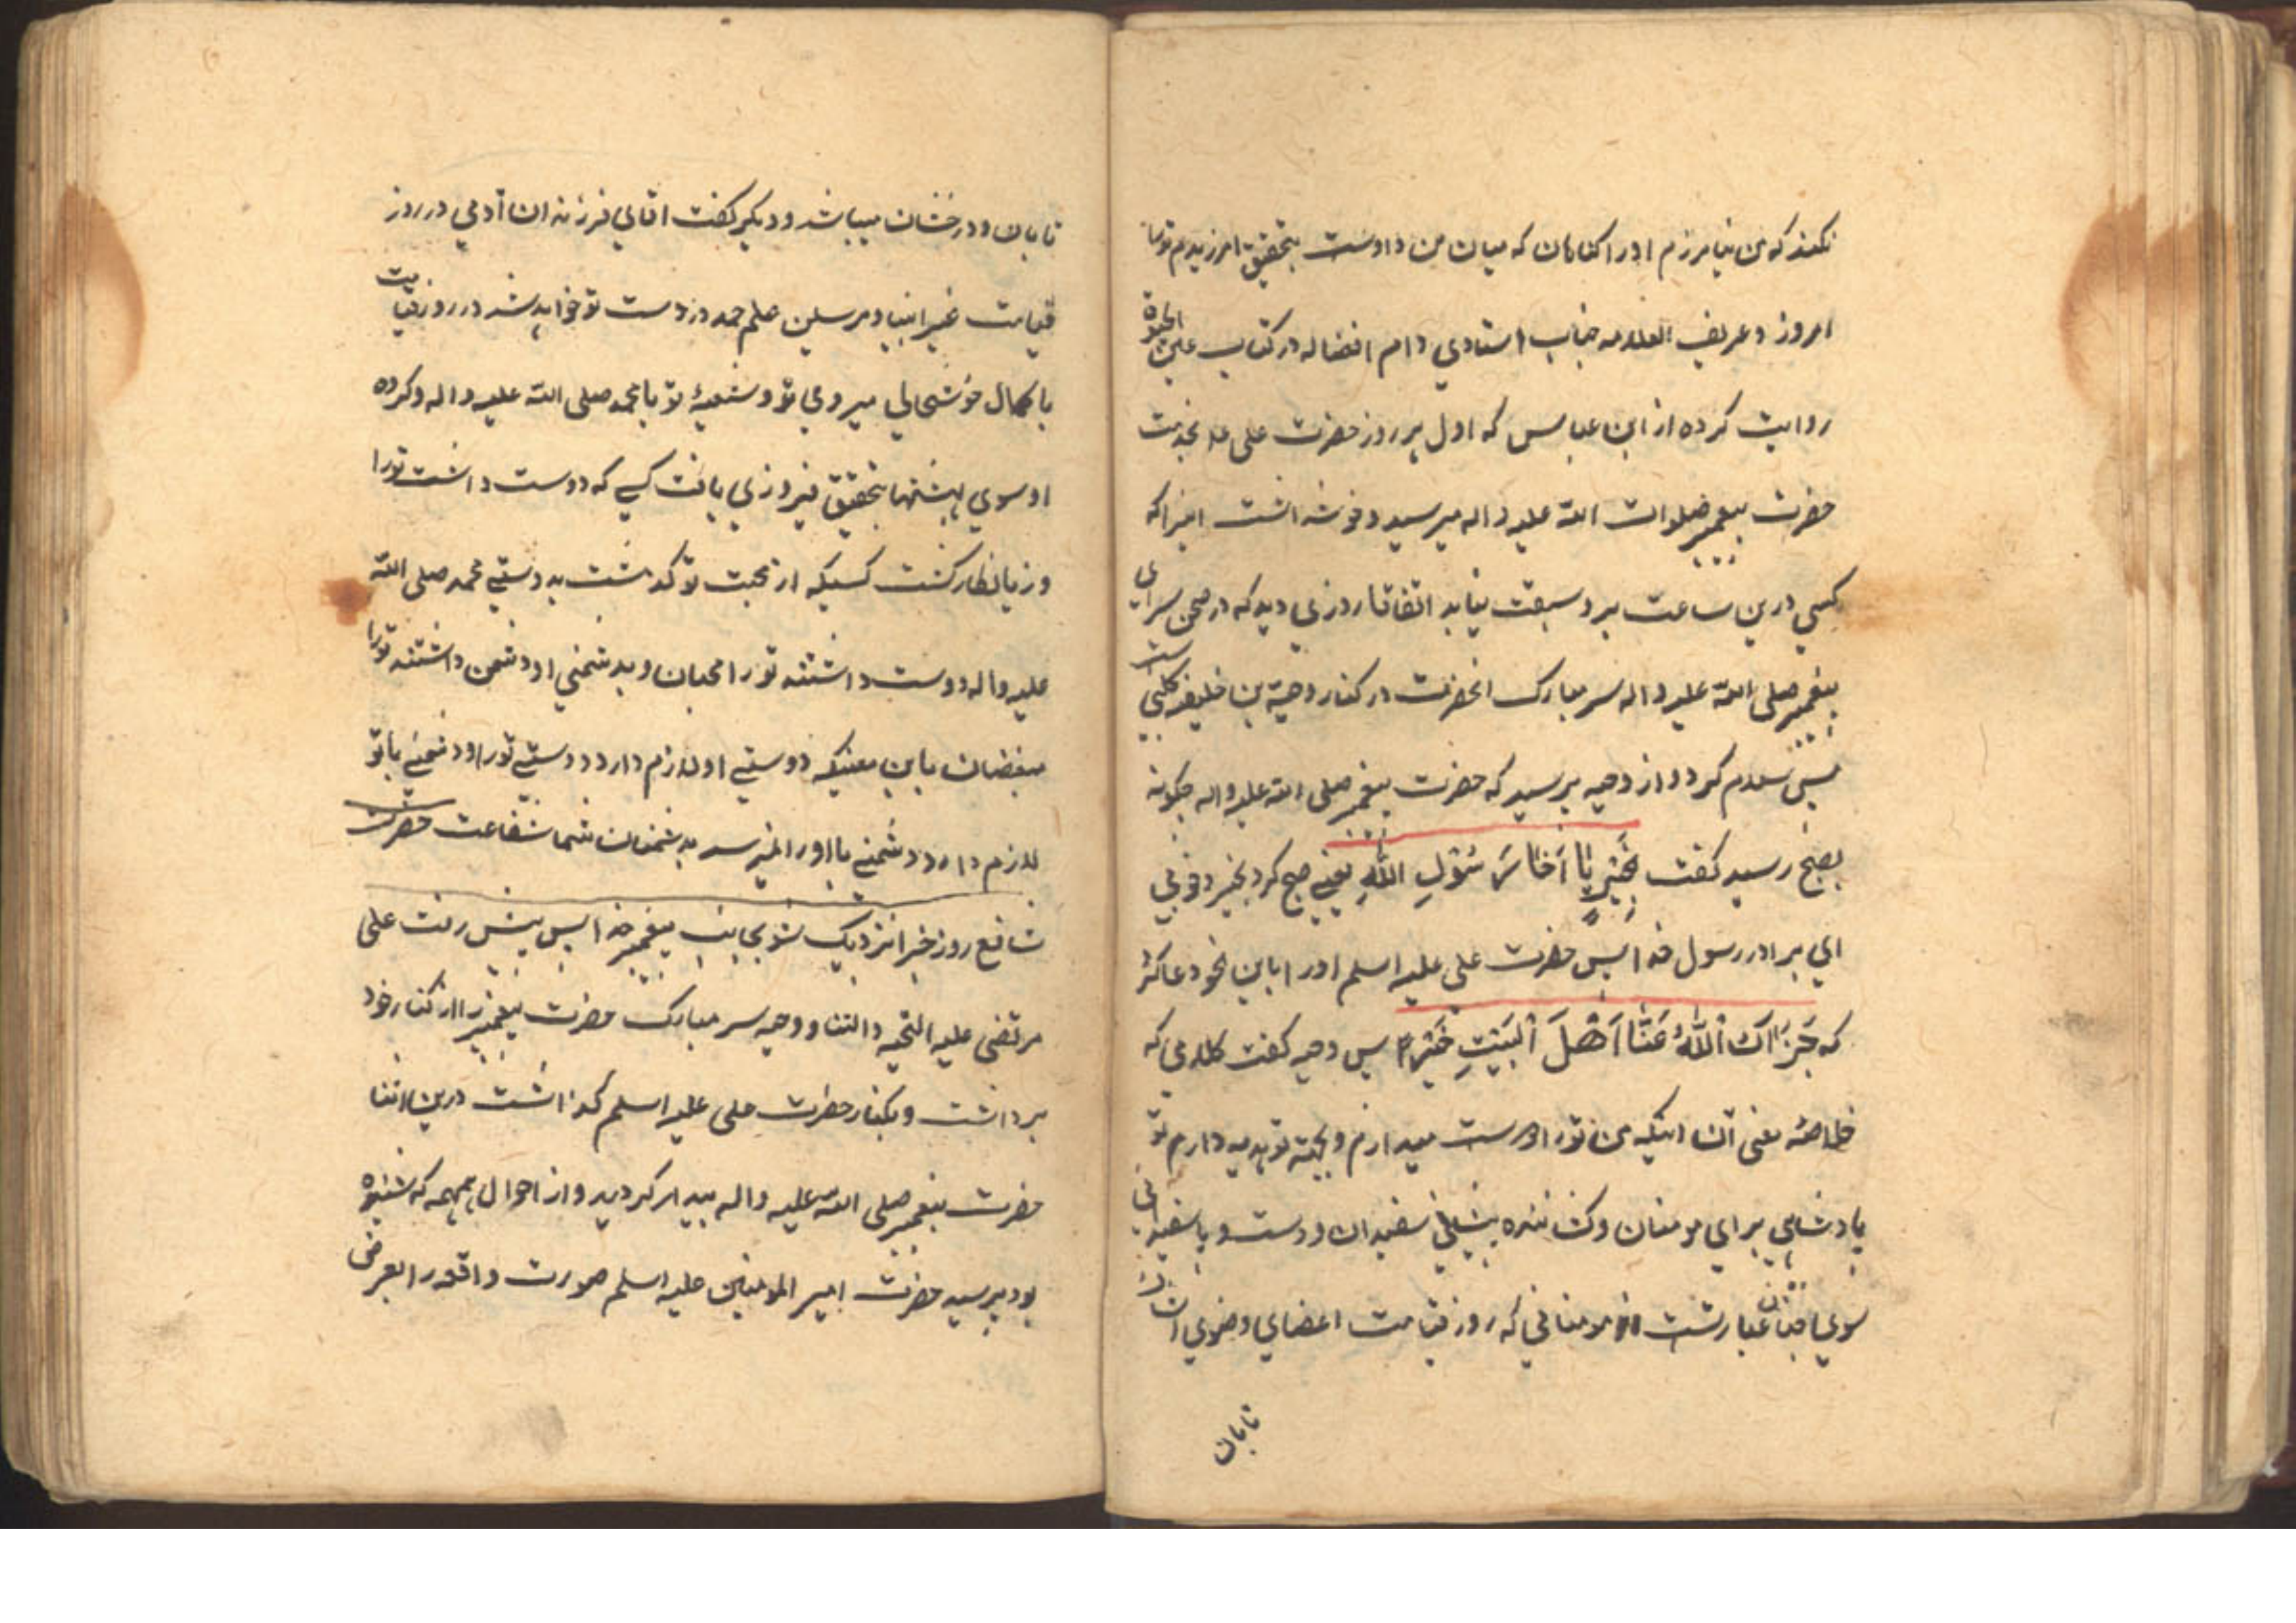 نکند که من نیامرزم اورا کناهان که میان من و اوست بتحقیق امرزیدم تورا
امروز و عریف العلامه جناب استادي دام افضاله در کتاب عین الحیوة
روایت کرده از ابن عباس که اول هر روز حضرت علی علا بخدمت
حضرت پیغمبر صلوات الله علیه و اله میرسید و خوش نداشت اینرا که
کسي درین ساعت برو سبقت نماید اتفاقا روزي دید که در صحن سراي
پیغمبر صلی الله علیه و اله سر مبارک انحضرت در کنار دحیة بن خلیفه کلبي است
پس سلام کرد و از دحیه پرسید که حضرت پیغمبر صلی الله علیه واله چکونه
بصبح رسید کفت بِخَیْرٍ یَا اَخَا رَسُوْلِ اللّٰهِ یعنے صبح کرد بخیر و خوبي
اي برادر رسول خدا پس حضرت علی علیه اسلم اورا باین نحو دعا کرد
که جَزَاکَ اللّٰهُ عَنَّا اَهْلَ الْبَیْتِ خَیْرًا پس دحیه کفت کلامي که
خلاصهٔ معنی آن اینکه من تورا دوست میدارم و بجهة تو هدیه دارم تو
پادشاهي براي مومنان و کشاننده پیشاني سفیدان و دست و پا سفیداني
سوي جنان عبارتست از مومناني که روز قیامت اعضاي وضوي انشان
تابان
تابان و درخشان میباشد و دیکر کفت اقاي فرزندان آدمي در روز
قیامت غیر انبیا و مرسلین علم حمد در دست تو خواهد شد در روز قیامت
با کمال خوشحالي میروي تو و شیعهٔ تو با محمد صلی الله علیه و اله و کرده
او سوي بهشتها بتحقیق فیروزي یافت کسے که دوست داشت تورا
و زیانکار کشت کسیکه از محبت تو کذشت به دوستے محمد صلی الله
علیه واله دوست داشتند تورا محبان و بدشمني او دشمن داشتند تورا
مبغضان باین معنیکه دوستے او لازم دارد دوستے تورا و دشمنے با تو
لازم دارد دشمنے با اورا نمیرسد بدشمنان شما شفاعت حضرت
شافع روز جزا نزدیک شو بجانب پیغمبر خدا پس پیش رفت علی
مرتضی علیه التحیه والثنا و دحیه سر مبارک حضرت پیغمبر را از کنار خود
برداشت و بکنار حضرت علی علیه اسلم کذاشت درین اثنا
حضرت پیغمبر صلی الله علیه واله بیدار کردید و از احوال همهمه که شنیده
بود پرسید حضرت امیر المومنین علیه اسلم صورت واقعه را بعرض